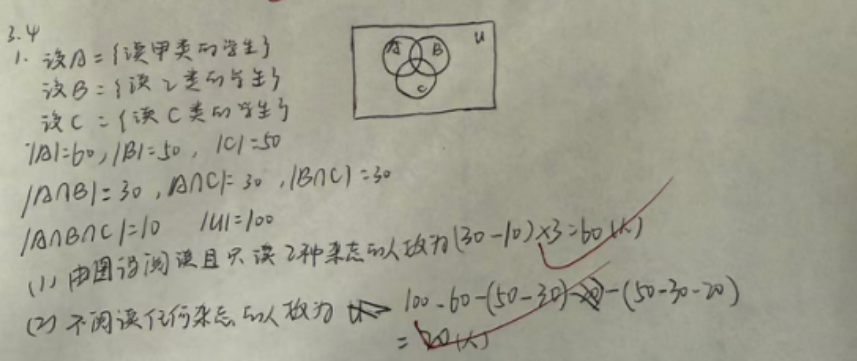 3.4
1. 设A={读甲类的学生}
设B={读乙类的学生}
设C={读C类的学生}
A B U
C
|A|=60, |B|=50, |C|=50
|A∩B|=30, A∩C|=30, |B∩C|=30
|A∩B∩C|=10 |U|=100
(1) 由图得阅读且只读2种杂志的人数为(30-10)×3=60(人)
(2) 不阅读任何杂志的人数为 100-60-(50-30)-(50-30-20)
=20(人)